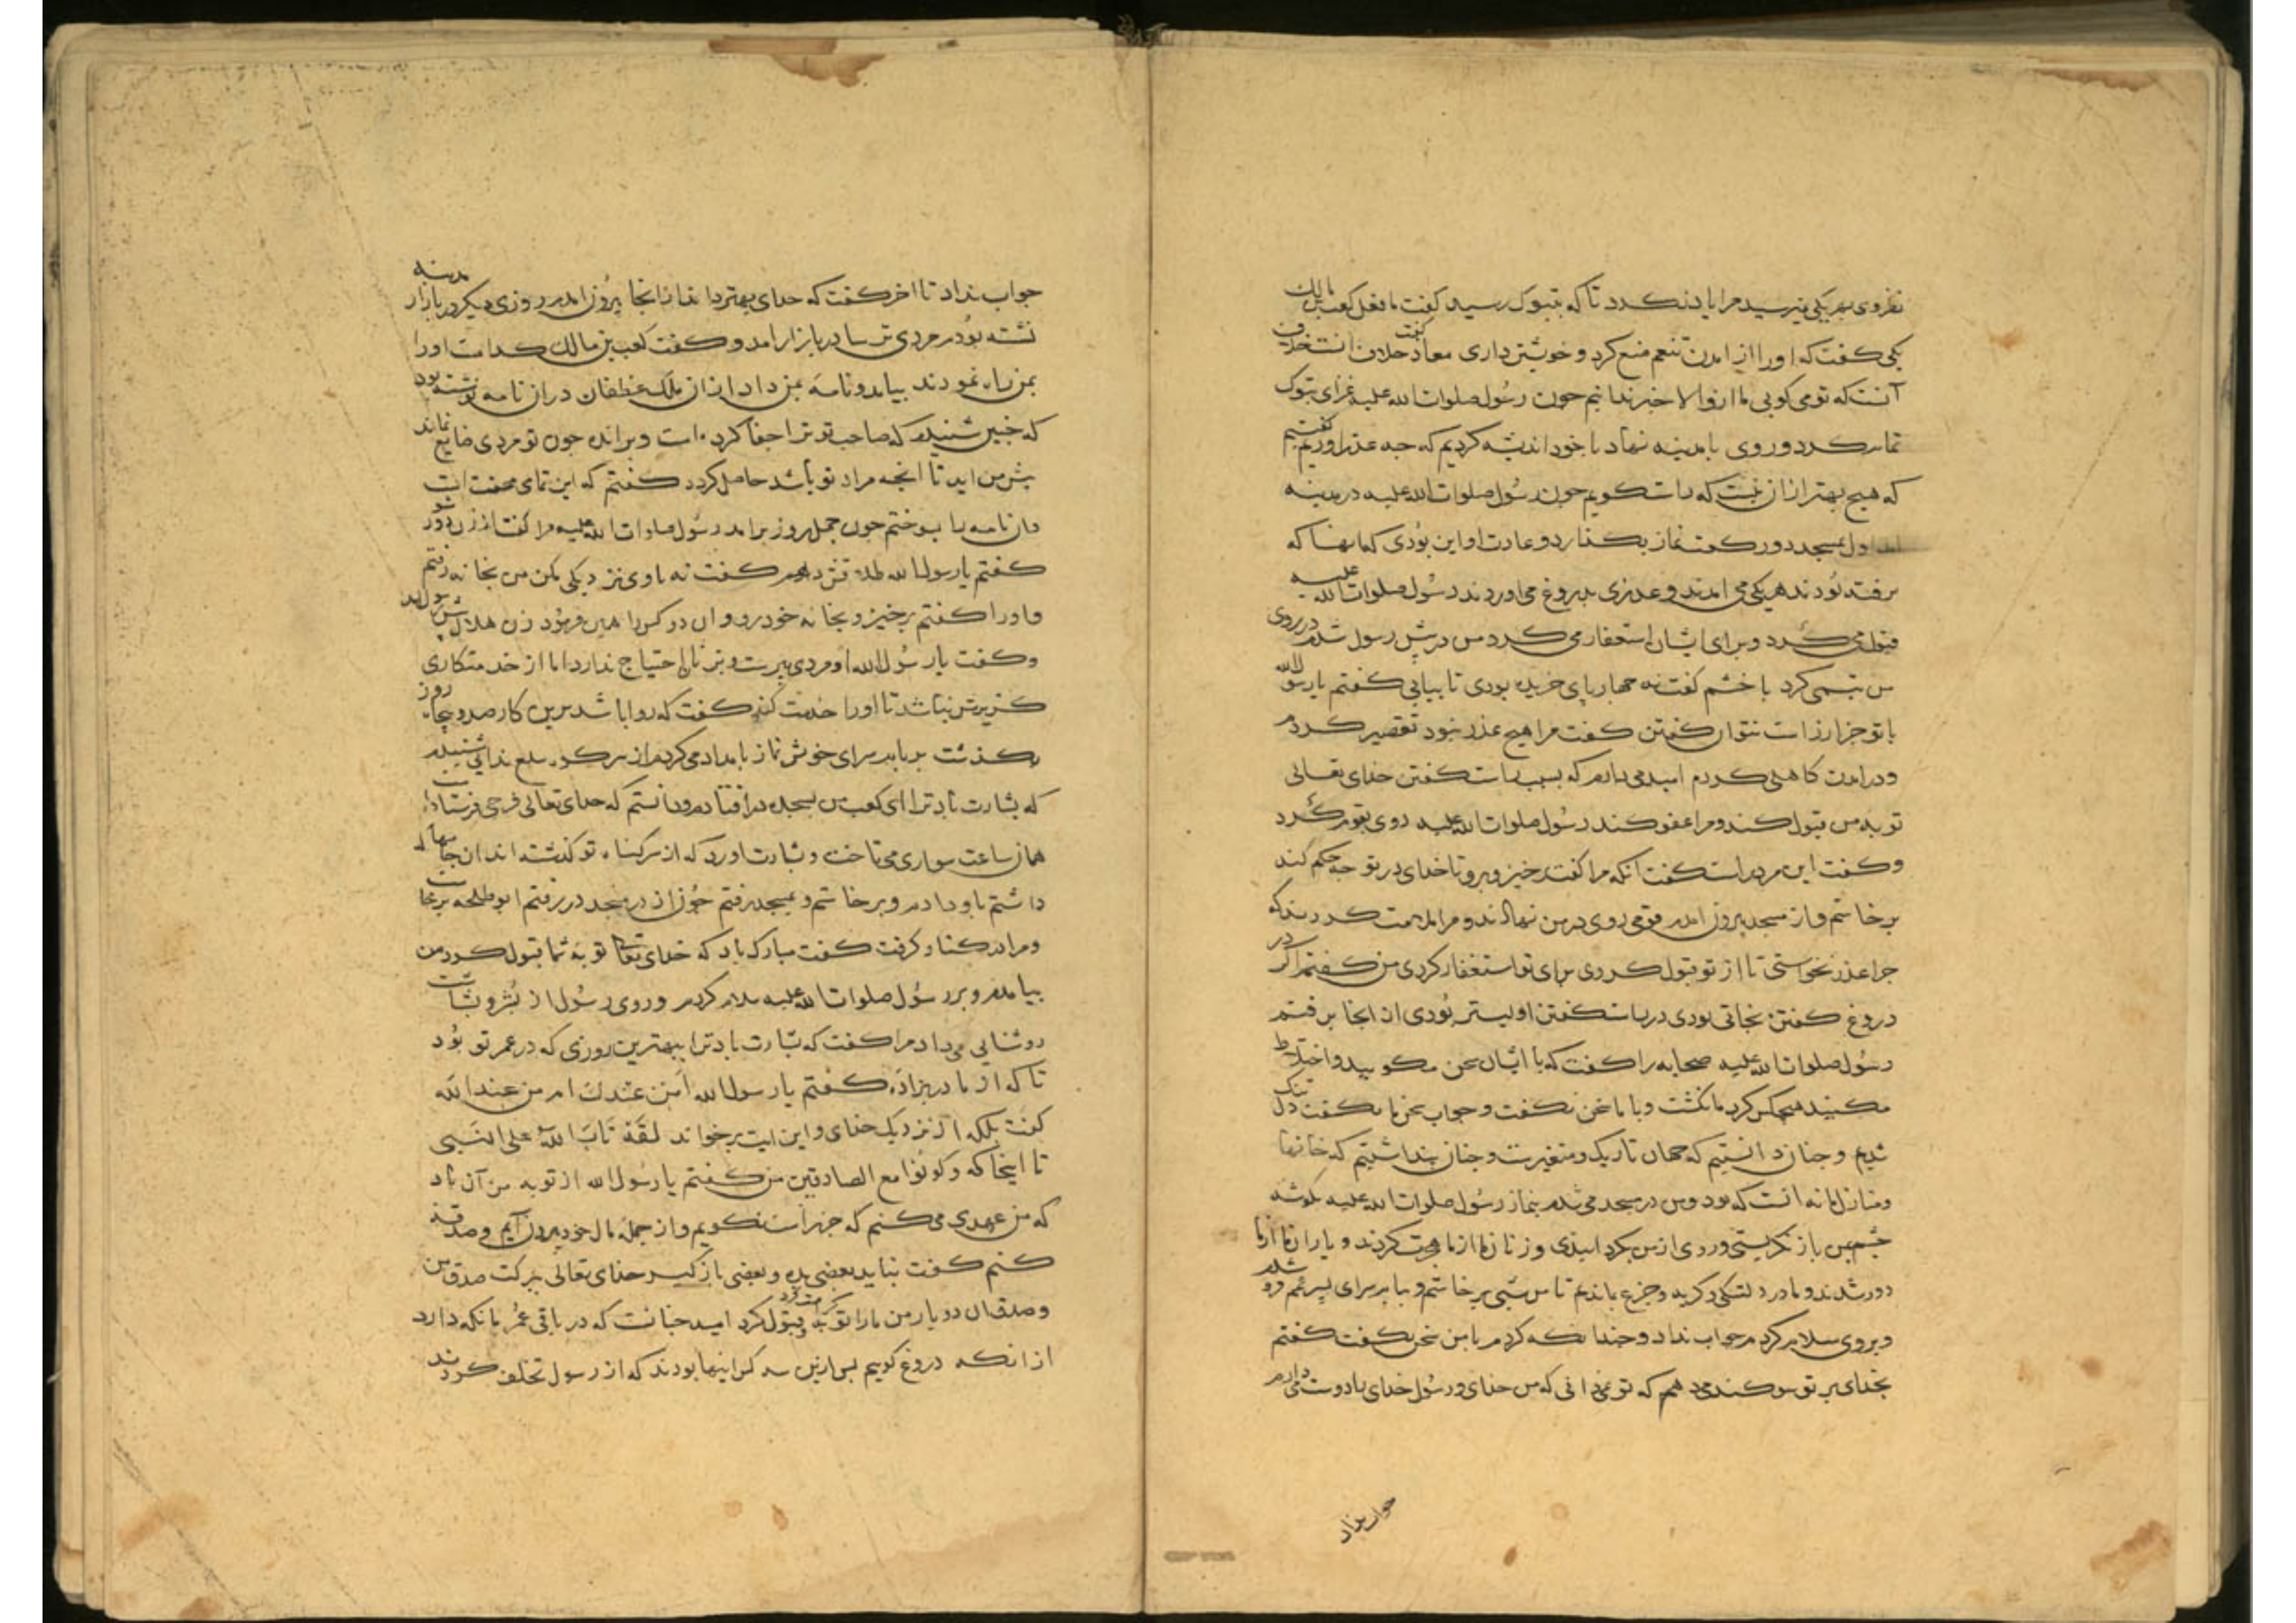 نفر وی بهر یکی میرسید مرا یاد نکرد تا که بتبوک رسید کفت ما فعل کعب بن مالک
یکی کفت که او را از امدن تنعم منع کرد و خویشتن داری معاد کفت خلاف انست
آنست که تو می کویی ما از و الا خیر ندانیم جون رسول صلوات الله علیه غزای تبوک
تمام کرد و روی با مدینه نهاد با خود اندیشه کردیم که جه عذر اوریم کفتیم
که هیچ بهتر از ان نیست که راست کویم جون رسول صلوات الله علیه در مدینه
امد اول بمسجد دو رکعت نماز بکذارد و عادت او این بودی کسانها که
نرفته بودند هر یکی می امدند و عذری بدروغ می اوردند رسول صلوات الله علیه
قبول می کرد و برای ایشان استغفار می کرد من در پیش رسول شدم در روی
من تبسمی کرد با خشم کفت نه جهار پای خریده بودی تا بیایی کفتم یا رسول الله
با تو جز از راست نتوان کفتن کفت مرا هیچ عذر نبود تقصیر کردم
و در امدن کاهلی کردم امید می دارم که بسبب راست کفتن خدای تعالی
توبه من قبول کند و مرا عفو کند رسول صلوات الله علیه روی بقوم کرد
و کفت این مرد راست کفت انکه مرا کفت خیز و برو تا خدای در تو جه حکم کند
برخاستم و از مسجد بیرون امدم قومی روی در من نهادند و مرا ملامت کردند که
جرا عذر نخواستی تا از تو قبول کردی و برای تو استغفار کردی من کفتم اکر در
دروغ کفتن نجاتی بودی در راست کفتن اولیتر بودی از انجا برفتم
رسول صلوات الله علیه صحابه را کفت که با ایشان سخن مکویید و اختلاط
مکنید هیچکس کرد ما نکشت و با ما سخن نکفت و جواب سخن ما نکفت دل تنک
شدیم و جنان دانستیم که جهان تاریک و متغیرست و جنان پنداشتیم که خانها
و منازل ما نه انست که بود و من در مسجد می شدم بنماز رسول صلوات الله علیه بکوشه
جشم بمن باز نکریستی و روی از من بکردانیدی و زنان ما از ما هجرت کردند و یاران ما از ما
دور شدند و ما در دلتنکی و کریه و جزع بماندیم تا من شبی برخاستم و بیام سرای پسر عم فرو شدم
و بر وی سلام کردم جواب نداد و جندانکه کردم با من سخن نکفت کفتم
بخدای بر تو سوکند می دهم که تو نمی دانی که من خدای و رسول خدای را دوست می دارم
جواب نداد
جواب نداد تا اخر کفت که خدای بهتر داند از انجا بیرون امدم روزی دیکر در بازار مدینه
نشسته بودم مردی ترسا در بازار امد و کفت کعب بن مالک کدامست او را
بمن راه نمودند بیامد و نامه بمن داد از ان ملک غطفان در ان نامه نوشته بود
که جنین شنیدم که صاحب تو ترا جفا کرده است و برانده جون تو مردی ضایع نماند
پیش من ای تا انجه مراد تو باشد حاصل کردد کفتم که این تمامی محنت است
و ان نامه را بسوختم جون جهل روز برامد رسول صلوات الله علیه مرا کفت از زن دور شو
کفتم یا رسول الله طلاقش دهم کفت نه با وی نزدیکی مکن من بخانه رفتم
و او را کفتم برخیز و بخانه خود رو و ان دو کس را همین فرمود زن هلال پیش رسول امد
و کفت یا رسول الله او مردی پیرست و بزنان احتیاج ندارد اما از خدمتکاری
کزیرش نباشد تا او را خدمت کنم کفت که روا باشد برین کار صد و پنجاه روز
بکذشت بر بام سرای خویش نماز بامداد می کردم از سر کوه سلع ندایی شنیدم
که بشارت باد ترا ای کعب من بسجده در افتادم و دانستم که خدای تعالی فرجی فرستاد
همان ساعت سواری می تاخت و بشارت اورد که از سر کناه تو کذشته اند ان جامها که
داشتم باو دادم و برخاستم و بمسجد رفتم جون از در مسجد در رفتم ابو طلحه برخاست
و مرا در کنار کرفت کفت مبارک باد که خدای تعالی توبه شما قبول کرد من
بیامدم و بر رسول صلوات الله علیه سلام کردم و روی رسول از بشر و بشاشت
روشنایی می داد مرا کفت که بشارت باد ترا ببهترین روزی که در عمر تو بود
تا که از مادر بزاده کفتم یا رسول الله امن عندک ام من عند الله
کفت بلکه از نزدیک خدای و این ایت برخواند لقد تاب الله علی النبی
تا اینجا که و کونوا مع الصادقین من کفتم یا رسول الله از توبه من آن باد
که من عهدی می کنم که جز راست نکویم و از جمله مال خود بیرون آیم و صدقه
کنم کفت نباید بعضی بده و بعضی باز کیر خدای تعالی ببرکت صدق من
و صدق ان دو یار من ما را توبه کرامت کرد و قبول کرد امید جنانست که در باقی عمر ما نکه دارد
از انکه دروغ کوییم پس ازین سه کس اینها بودند که از رسول تخلف کردند